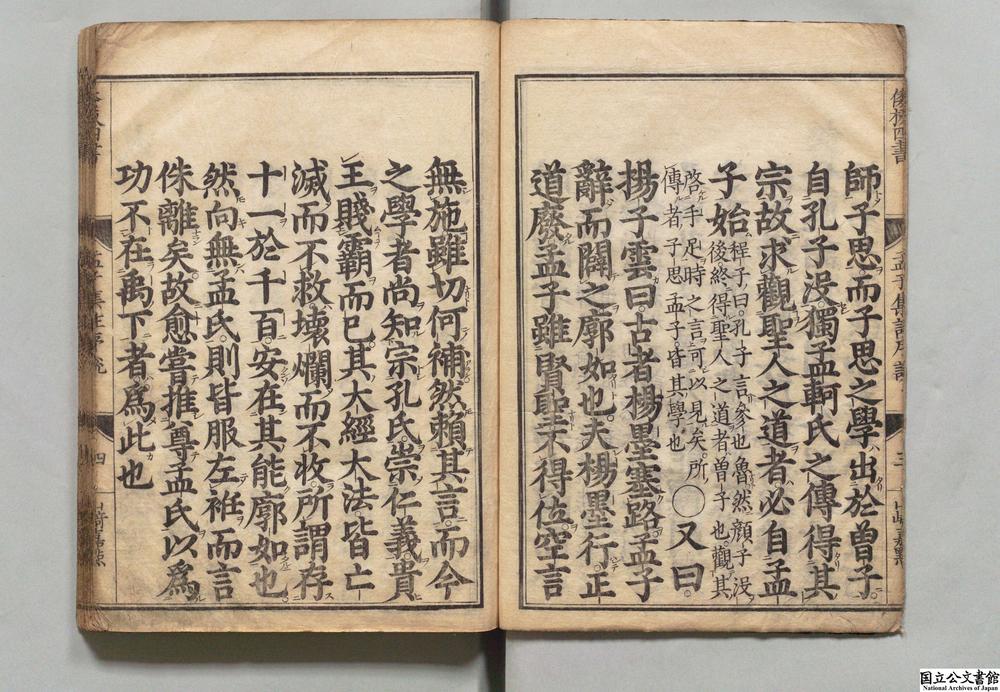 師子思而子思之學出於曾子
自孔子没獨孟軻氏之傳得其
宗故求觀聖人之道者必自孟
子始程子曰孔子言參也魯然顏子没
後終得聖人之道者曾子也觀其
啓手足時之言可以見矣所
傳者子思孟子皆其學也
〇又曰
揚子雲曰古者楊墨塞路孟子
辭而闢之廓如也夫楊墨行正
道廢孟子雖賢聖不得位空言
無施雖切何補然賴其言而今
之學者尚知宗孔氏崇仁義貴
王賤霸而已其大經大法皆亡
滅而不救壞爛而不收所謂存
十一於千百安在其能廓如也
然向無孟氏則皆服左衽而言
侏離矣故愈嘗推尊孟氏以爲
功不在禹下者爲此也
四
国立公文書館
National Archives of Japan